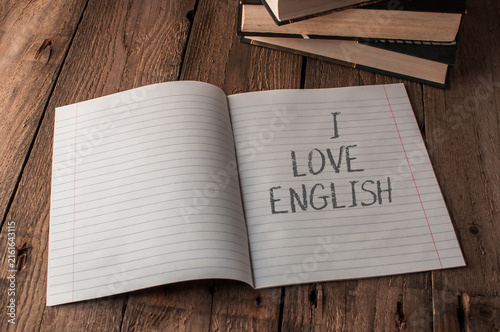 I
LOVE
ENGLISH
218643115